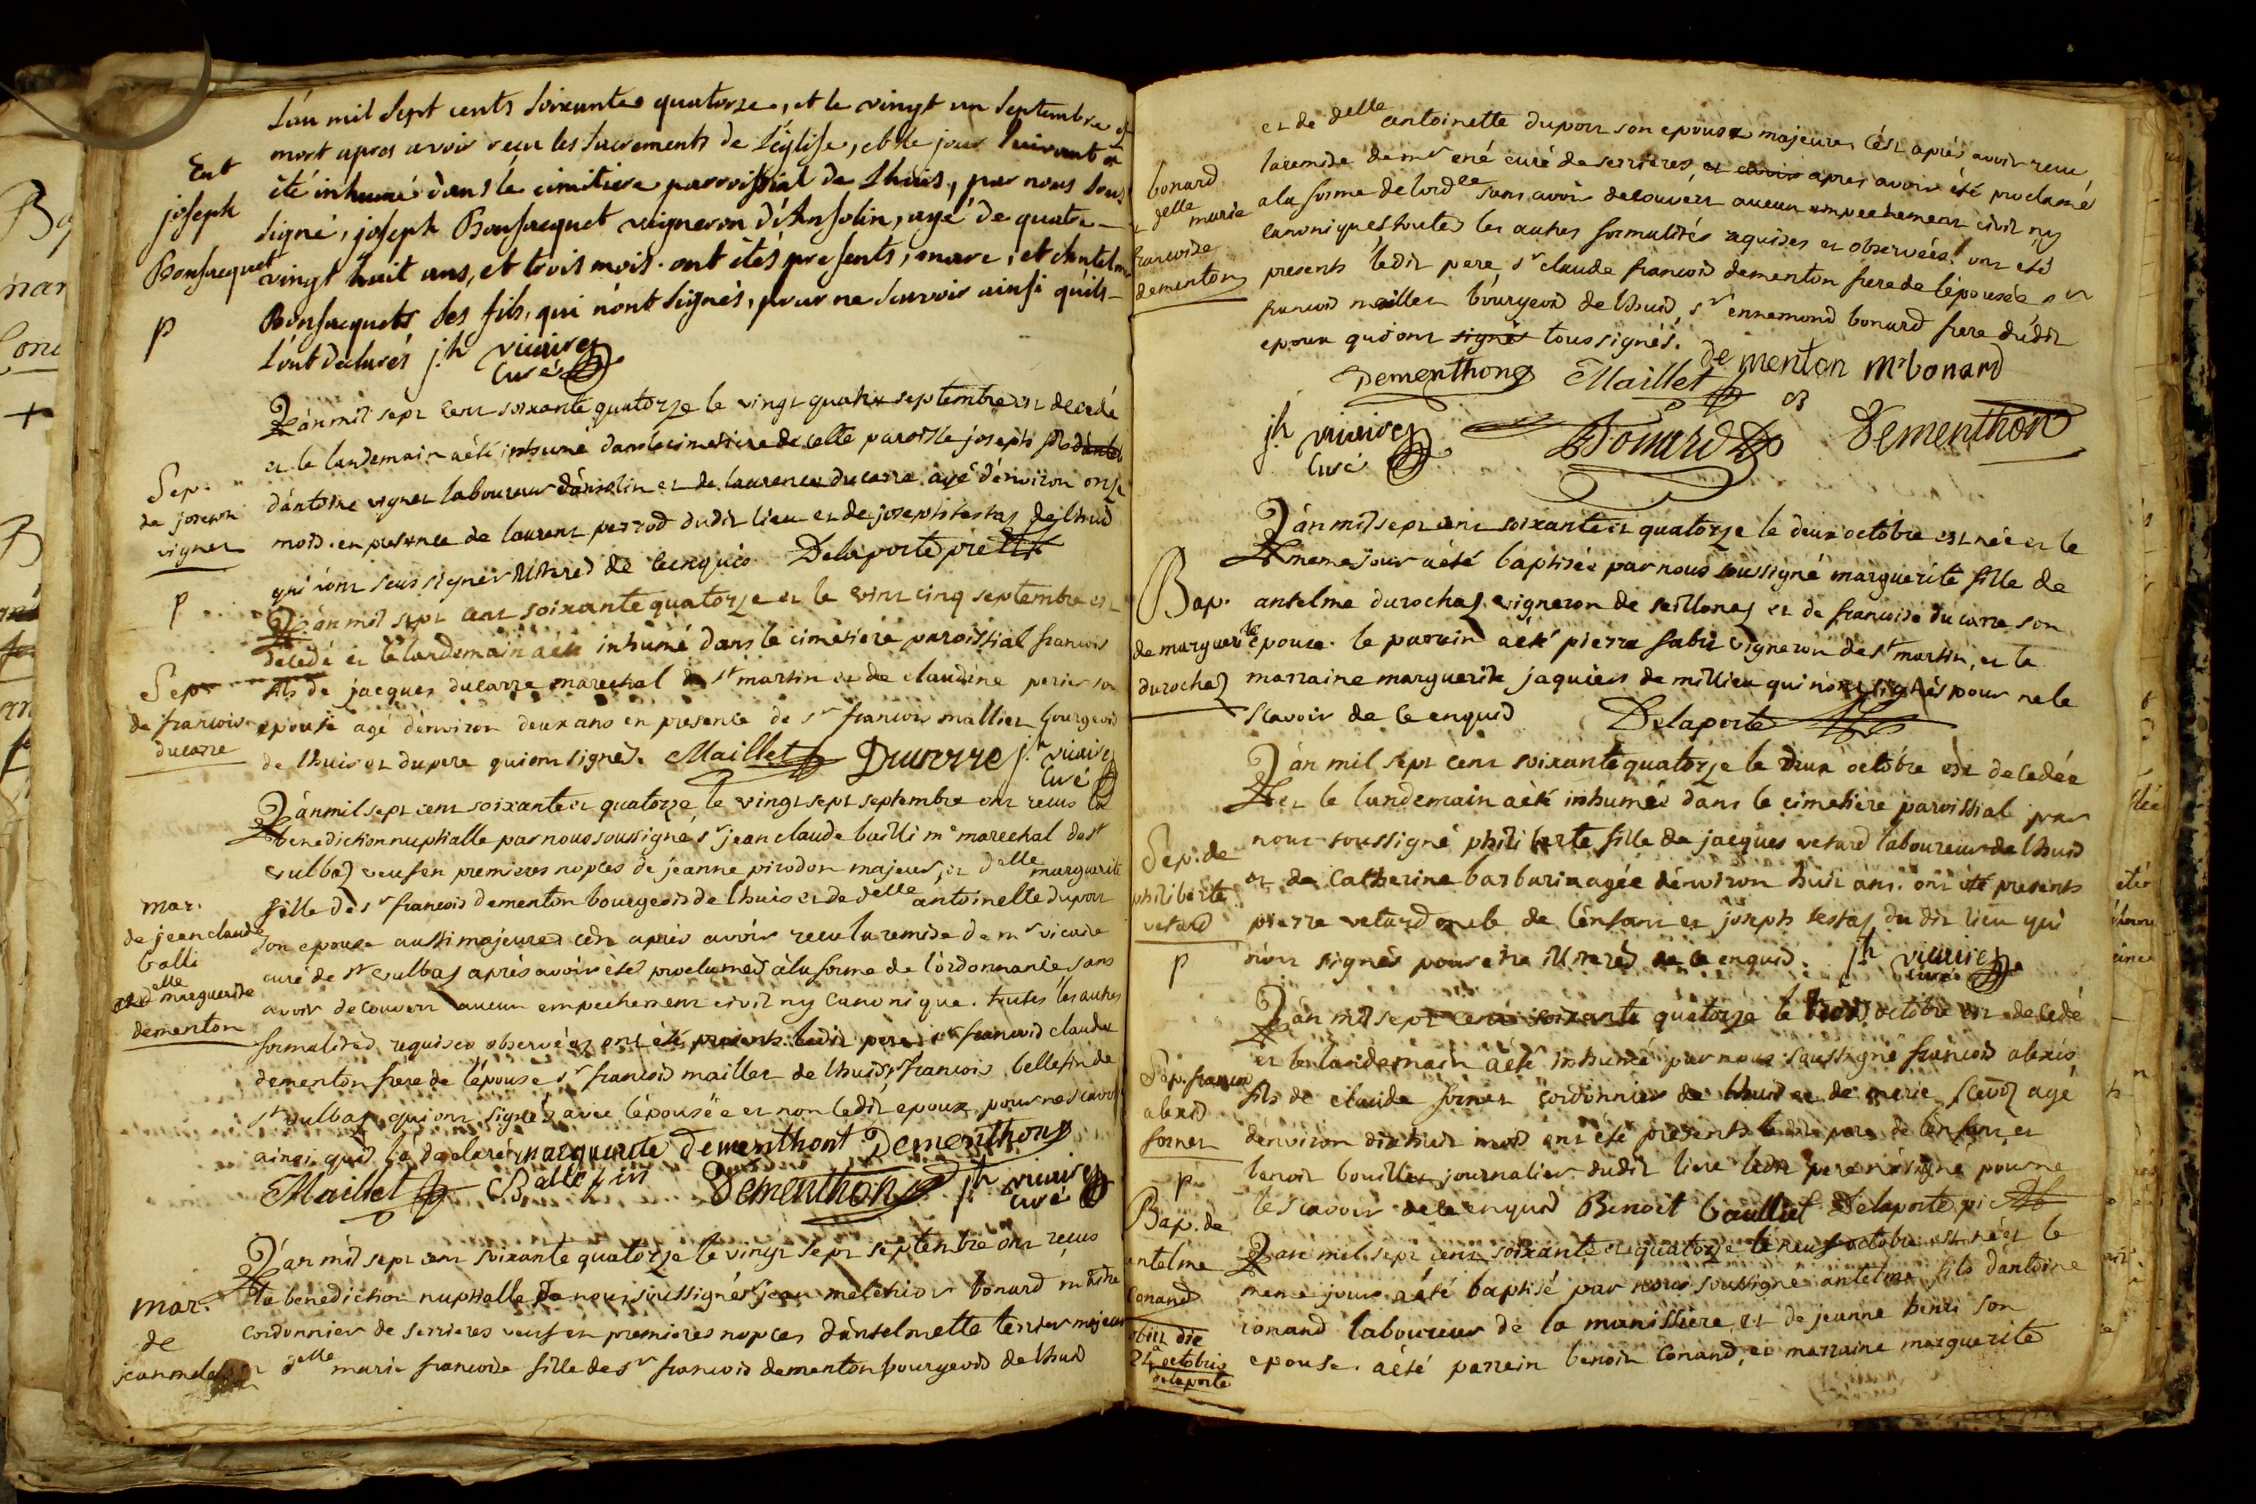 L'an mil sept cents soixante quatorze, et le vingt un septembre est
mort apres avoir reçu les sacrements de L'église, et le jour suivant a
Ent
joseph
Bonfacquet
p
été inhumé dans le cimitiere parroissial de Lhuis, par nous sous
signé, joseph Bonfacquet vigneron d'Ansolin, agé de quatre
vingt huit ans, et trois mois. ont étés présents, marc, et Antelme
Bonfacquets ses fils, qui n'ont signés, pour ne sçavoir ainsi qu'ils
L'ont declarés jh vivier
Curé
L'an mil sept cent soixante quatorze le vingt quatre septembre est decedé
et le landemain a été inhumé dans le cimetiere de cette paroisse joseph fils
Sep.
de joseph
vignet
p
d'antoine vignet laboureur d'ansolin et de laurence ducarre agé d'environ onze
mois. en presence de laurent perrod dudit lieu et de joseph testas de lhuis
qui n'ont sous signer illiteres de ce enquis Delaporte pre
L'an mil sept cent soixante quatorze et le vint cinq septembre est
decedé et le landemain a été inhumé dans le cimetiere paroissial francois
Sep.
de francois
ducarre
fils de jacques ducarre marechal de st martin et de claudine perier son
epouse agé d'environ deux ans en presence de sr francois mallier bourgeois
de lhuis et du pere qui ont signés. Maillet Ducarre jh vivier
Curé
L'an mil sept cent soixante et quatorze le vingt sept septembre ont reçus la
benediction nuptialle par nous soussigné sr jean claude balli me marechal de st
vulbas veuf en premieres nopces de jeanne pirodon majeur, et delle marguerite
mar.
de jean claude
balli
et delle marguerite
dementon
fille de sr francois dementon bourgeois de lhuis et de delle antoinette dupon
son epouse aussi majeure et ce apres avoir recu la remise de mr vicaire
curé de st vulbas après avoir été proclamés à la forme de l'ordonnance, sans
avoir decouvert aucun empechement civil ny canonique. toutes les autres
formalités requises observées ont été presents ledit pere sr francois claude
dementon frere de l'épouse sr francois maillet de lhuis sr francois bellefin de
st vulbas qui ont signés avec l'épousée et non ledit epoux pour ne scavoir
ainsi qu'il l'a declaré marguerite Dementhont Dementhon
Maillet Ballefin Dementhon jh vivier
curé
L'an mil sept cent soixante quatorze le vingt sept septembre ont reçus
mar.
de
jean melchior
la benediction nuptialle de nous soussigné sr jean melchior bonard maitre
cordonnier de serrieres veuf en premieres nopces d'anselmette tenier majeur
delle marie francoise fille de sr francois dementon bourgeois de lhuis
et de delle antoinette dupon son epouse majeure, c'est après avoir recu
la remise de mr curé de serrieres, et apres avoir été proclamé
bonard
delle marie
francoise
dementon
a la forme de lordce sans avoir decouvert aucun empechement civil ny
canonique toutes les autres formalités aquises et observées. ont été
presents ledit pere, sr claude francois dementon frere de l'épousée sr
francois maillet bourgeois de lhuis, sr ennemond bonard frere dudit
epoux qui ont signés tous signés.
Dementhon Maillet de menton Mr bonard
jh vivier
Curé
Bonard Dementhon
L'an mil sept cent soixante et quatorze le deux octobre est née et le
meme jour a été baptisée par nous soussigné marguerite fille de
Bap.
de marguerite
durochas
anselme durochas vigneron de seillonas et de francoise ducarre son
epouse. le parrain a été pierre fabri vigneron de st martin, et la
marraine marguerite jaquier de millieu qui n'ont signés pour ne le
scavoir de ce enquis Delaporte
L'an mil sept cent soixante quatorze le deux octobre est decedée
et le landemain a été inhumée dans le cimetiere paroissial par
Sep. de
philiberte
vetard
p
nous soussigné philiberte fille de jacques vetard laboureur de lhuis
et de Catherine barbarin agée d'environ huit ans. ont été presents
pierre vetard oncle de l'enfant et joseph testas du dit lieu qui
n'ont signés pour etre illiteres de ce enquis. jh vivier
curé
L'an mil sept cent soixante quatorze le trois octobre est decedé
et le landemain a été inhumé par nous soussigné francois alexis
Sep. francois
alexis
fornet
p
fils de claude fornet cordonnier de lhuis et de marie agé
d'environ dix huit mois ont été presents ledit pere de l'enfant, et
benoit bouillet journalier dudit lieu ledit pere n'a signé pour ne
le scavoir de ce enquis Benoit boulliet Delaporte p
Bap. de
antelme
Conand
obiit die
24a octobris
delaporte
L'an mil sept cent soixante et quatorze le neuf octobre est né et le
meme jour a été baptisé par nous soussigné antelme fils d'antoine
conand laboureur de la manissiere, et de jeanne henri son
epouse. a été parrein benoit Conand, et marraine marguerite